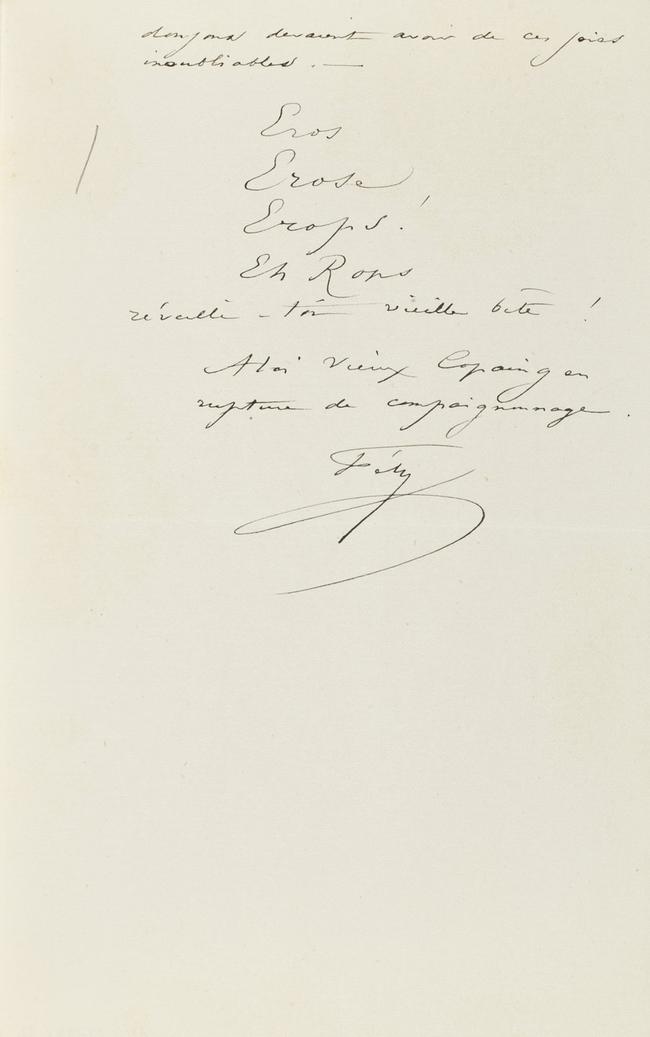 donjons devaient avoir de ces joies
inoubliables. —
Eros
Erose
Erops!
Eh Rops
réveille-toi vieille bête !
A toi Vieux Copaing en
rupture de compaignonnage.
Fély